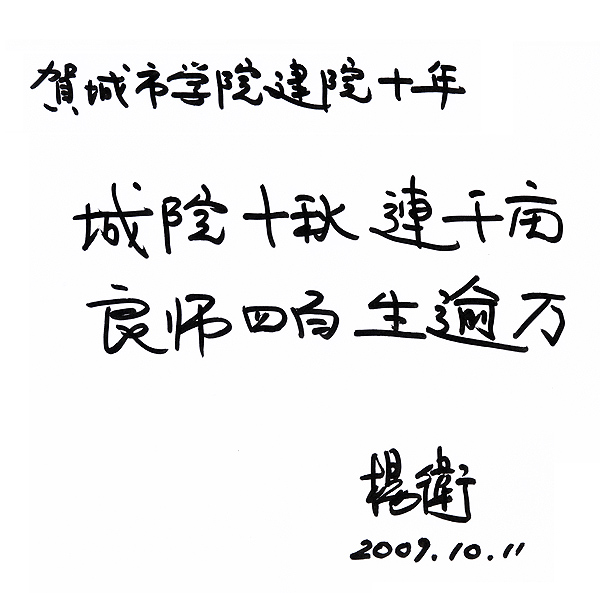 賀城市学院建院十年
城院十秋連千亩
良师四百生逾万
楊衛
2009.10.11